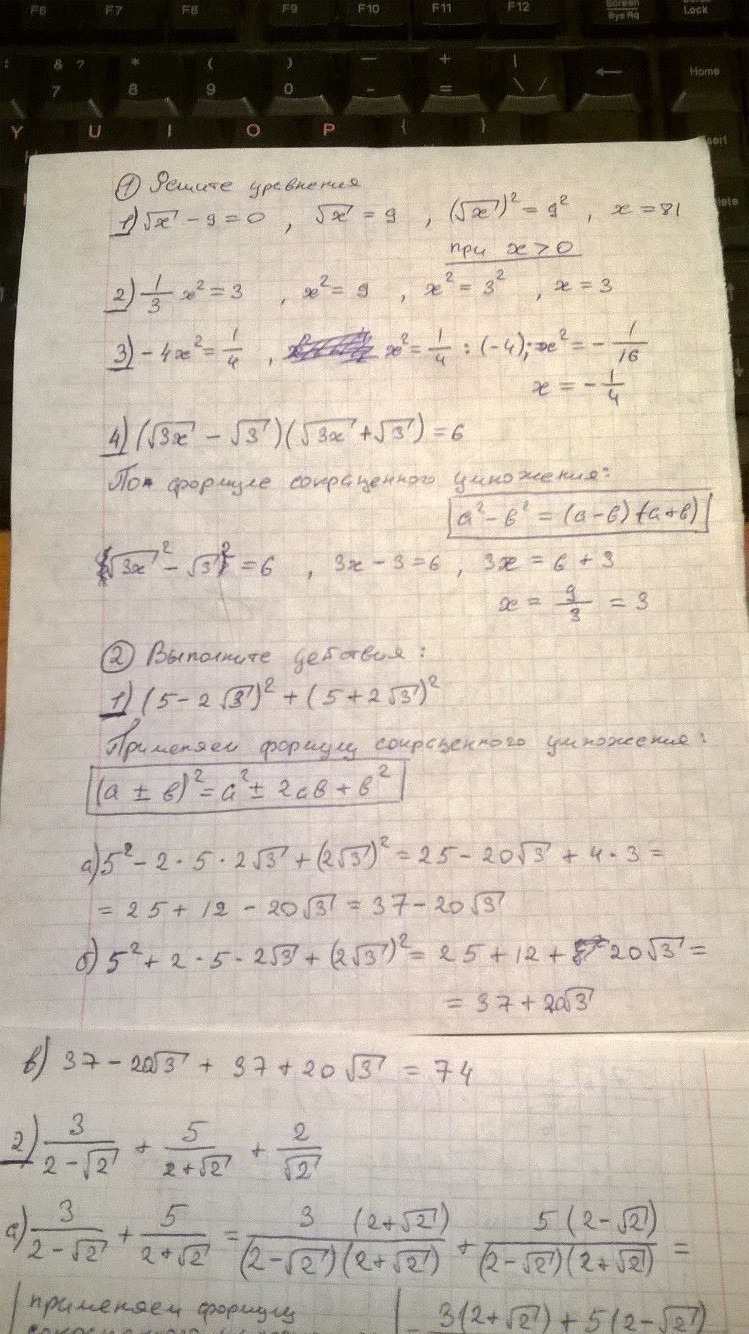 F6 F7 F8 F9 F10 F11 F12 Screen Lock
Sys Rq
& ? * ( ) — + | ←
7 8 9 0 - = \ / Home
Y U I O P { }
① Решите уравнения
1) √x - 9 = 0 , √x = 9 , (√x)² = 9² , x = 81
при x > 0
2) 1/3 x² = 3 , x² = 9 , x² = 3² , x = 3
3) - 4x² = 1/4 , x² = 1/4 : (-4); x² = - 1/16
x = - 1/4
4) (√3x - √3)(√3x + √3) = 6
По формуле сокращенного умножения:
a² - в² = (a - в) (a + в)
√3x² - √3² = 6 , 3x - 3 = 6 , 3x = 6 + 3
x = 9/3 = 3
② Выполните действия :
1) (5 - 2√3)² + (5 + 2√3)²
Применяем формулу сокращенного умножения:
(a ± в)² = a² ± 2aв + в²
а) 5² - 2 · 5 · 2√3 + (2√3)² = 25 - 20√3 + 4 · 3 =
= 25 + 12 - 20√3 = 37 - 20√3
б) 5² + 2 · 5 · 2√3 + (2√3)² = 25 + 12 + 20√3 =
= 37 + 20√3
в) 37 - 20√3 + 37 + 20√3 = 74
2) 3/(2 - √2) + 5/(2 + √2) + 2/√2
а) 3/(2 - √2) + 5/(2 + √2) = 3 (2 + √2)/((2 - √2)(2 + √2)) + 5 (2 - √2)/((2 - √2)(2 + √2)) =
применяем формулу
3(2 + √2) + 5(2 - √2)